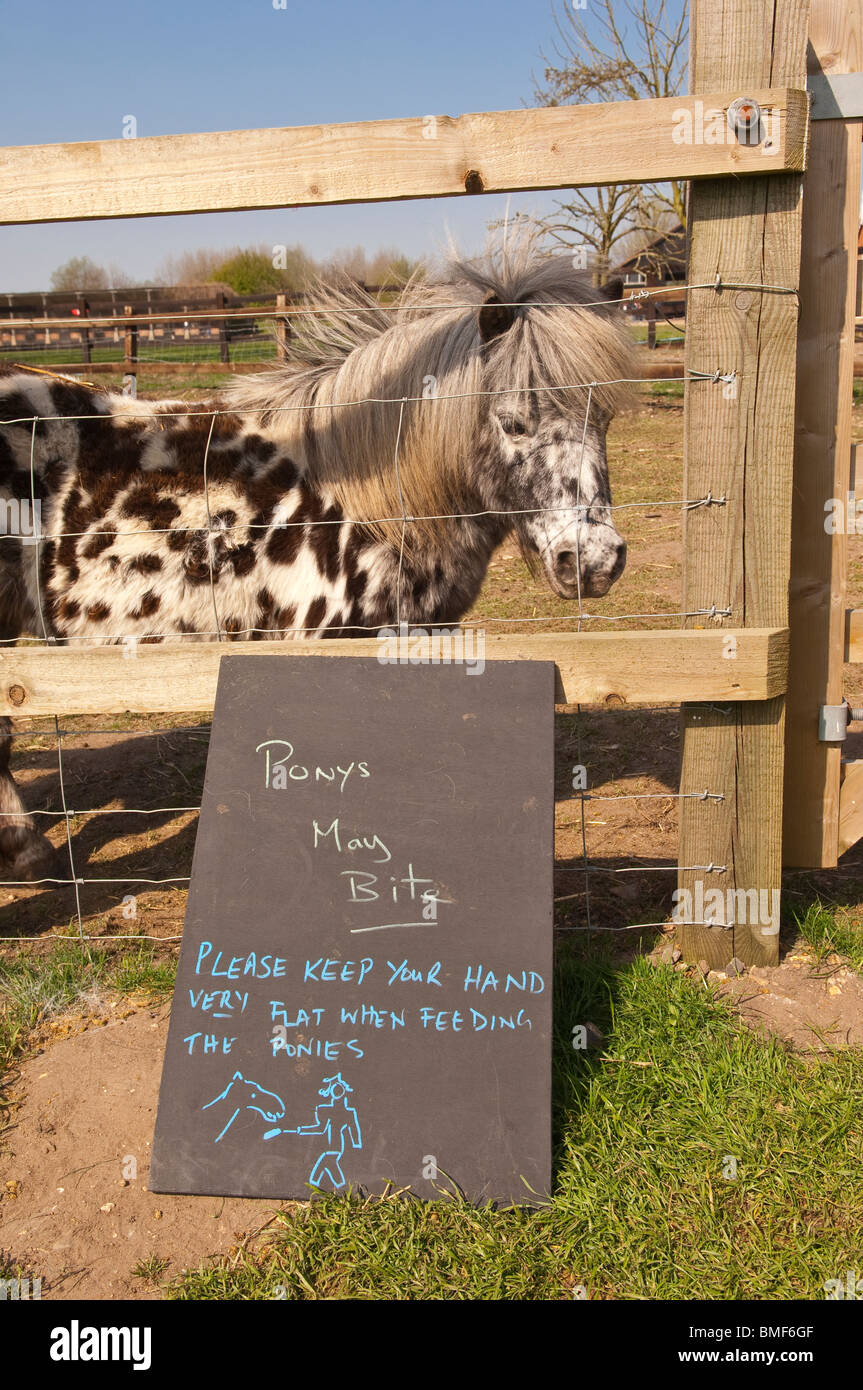 Ponys
May
Bite
PLEASE KEEP YOUR HAND
VERY FLAT WHEN FEEDING
THE PONIES
alamy
Image ID: BMF6GF
www.alamy.com